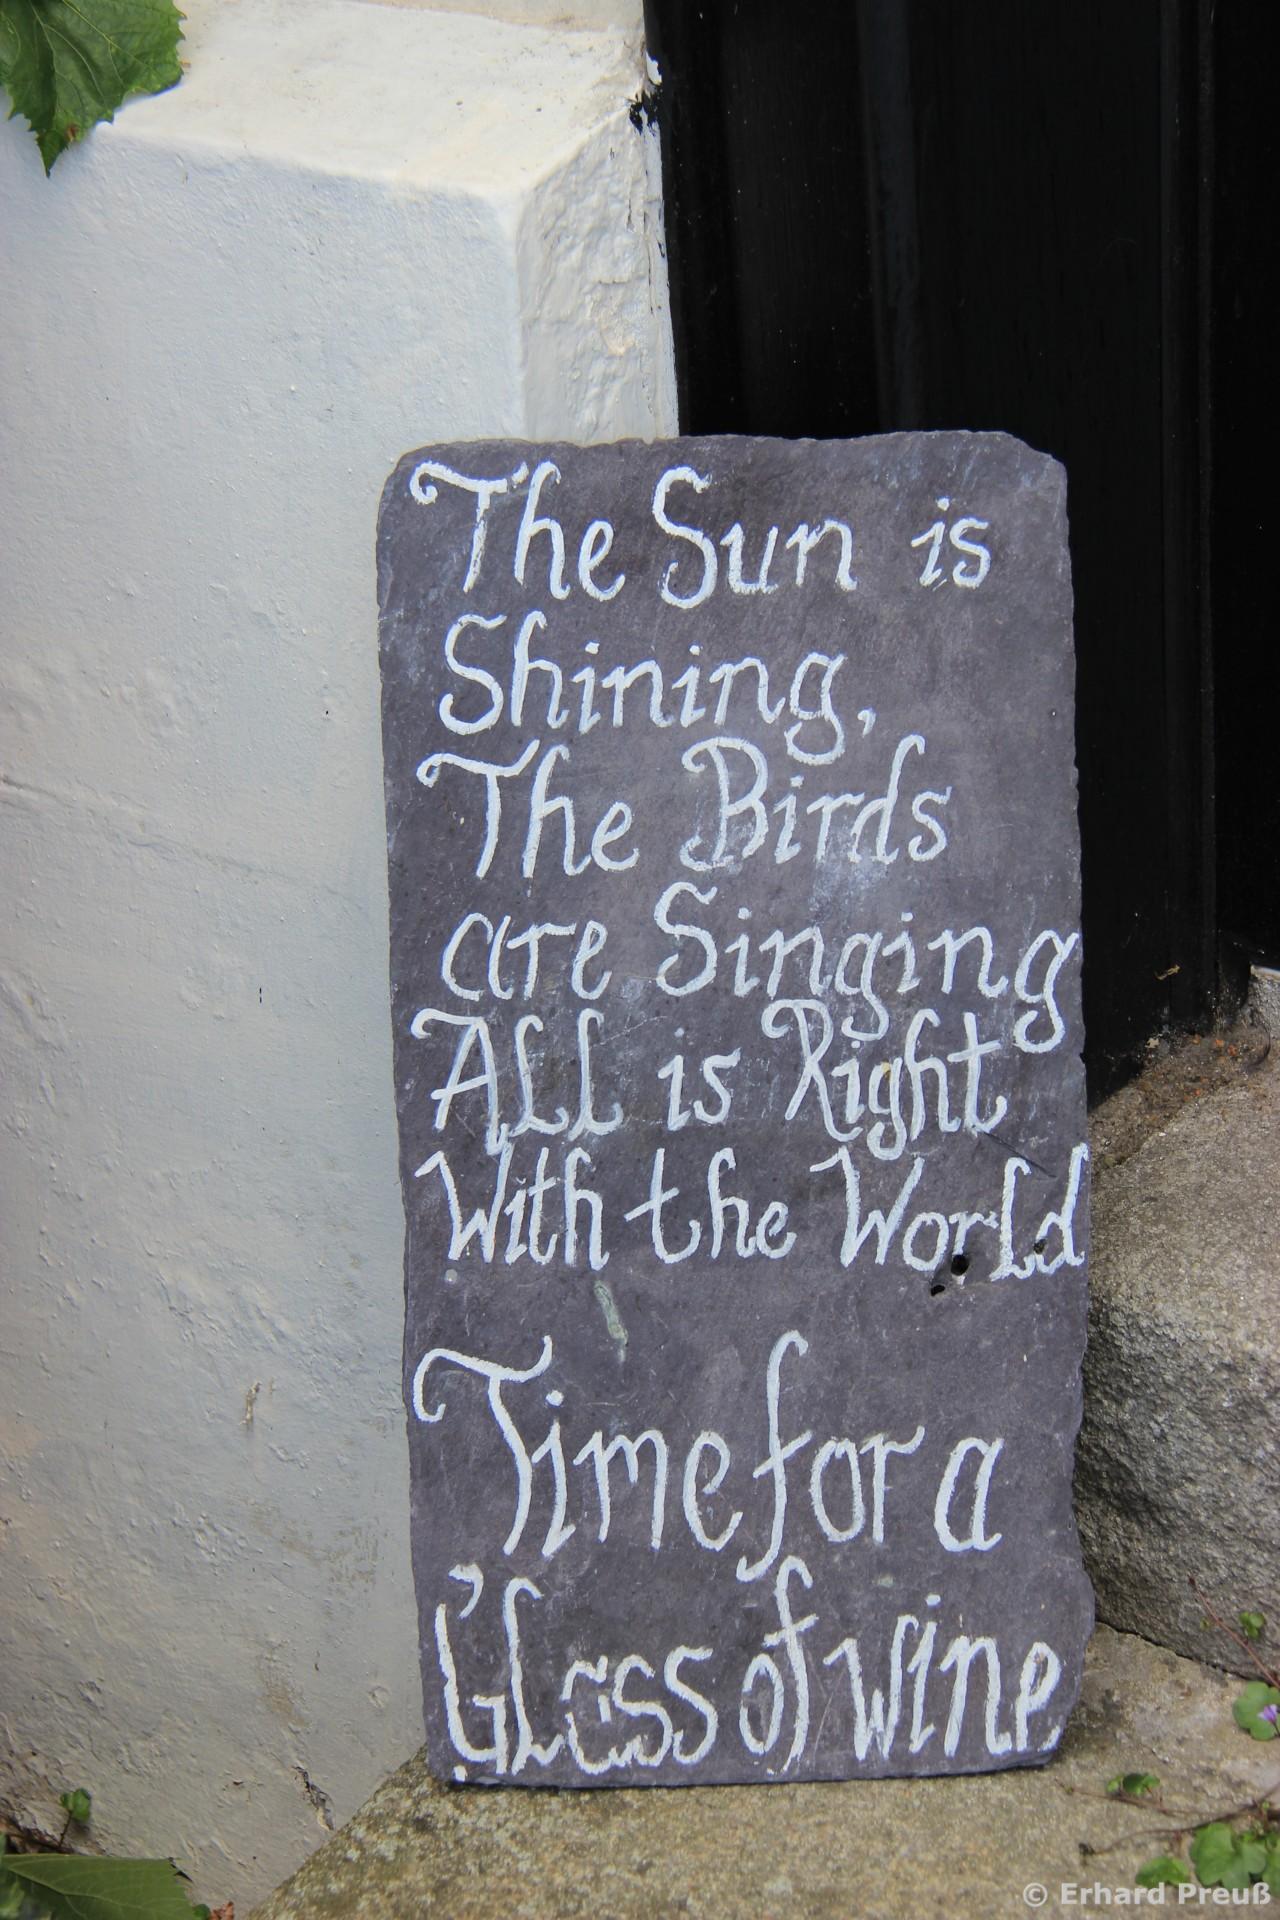 The Sun is
Shining,
The Birds
are Singing
All is Right
With the World
Time for a
Glass of wine
© Erhard Preuß